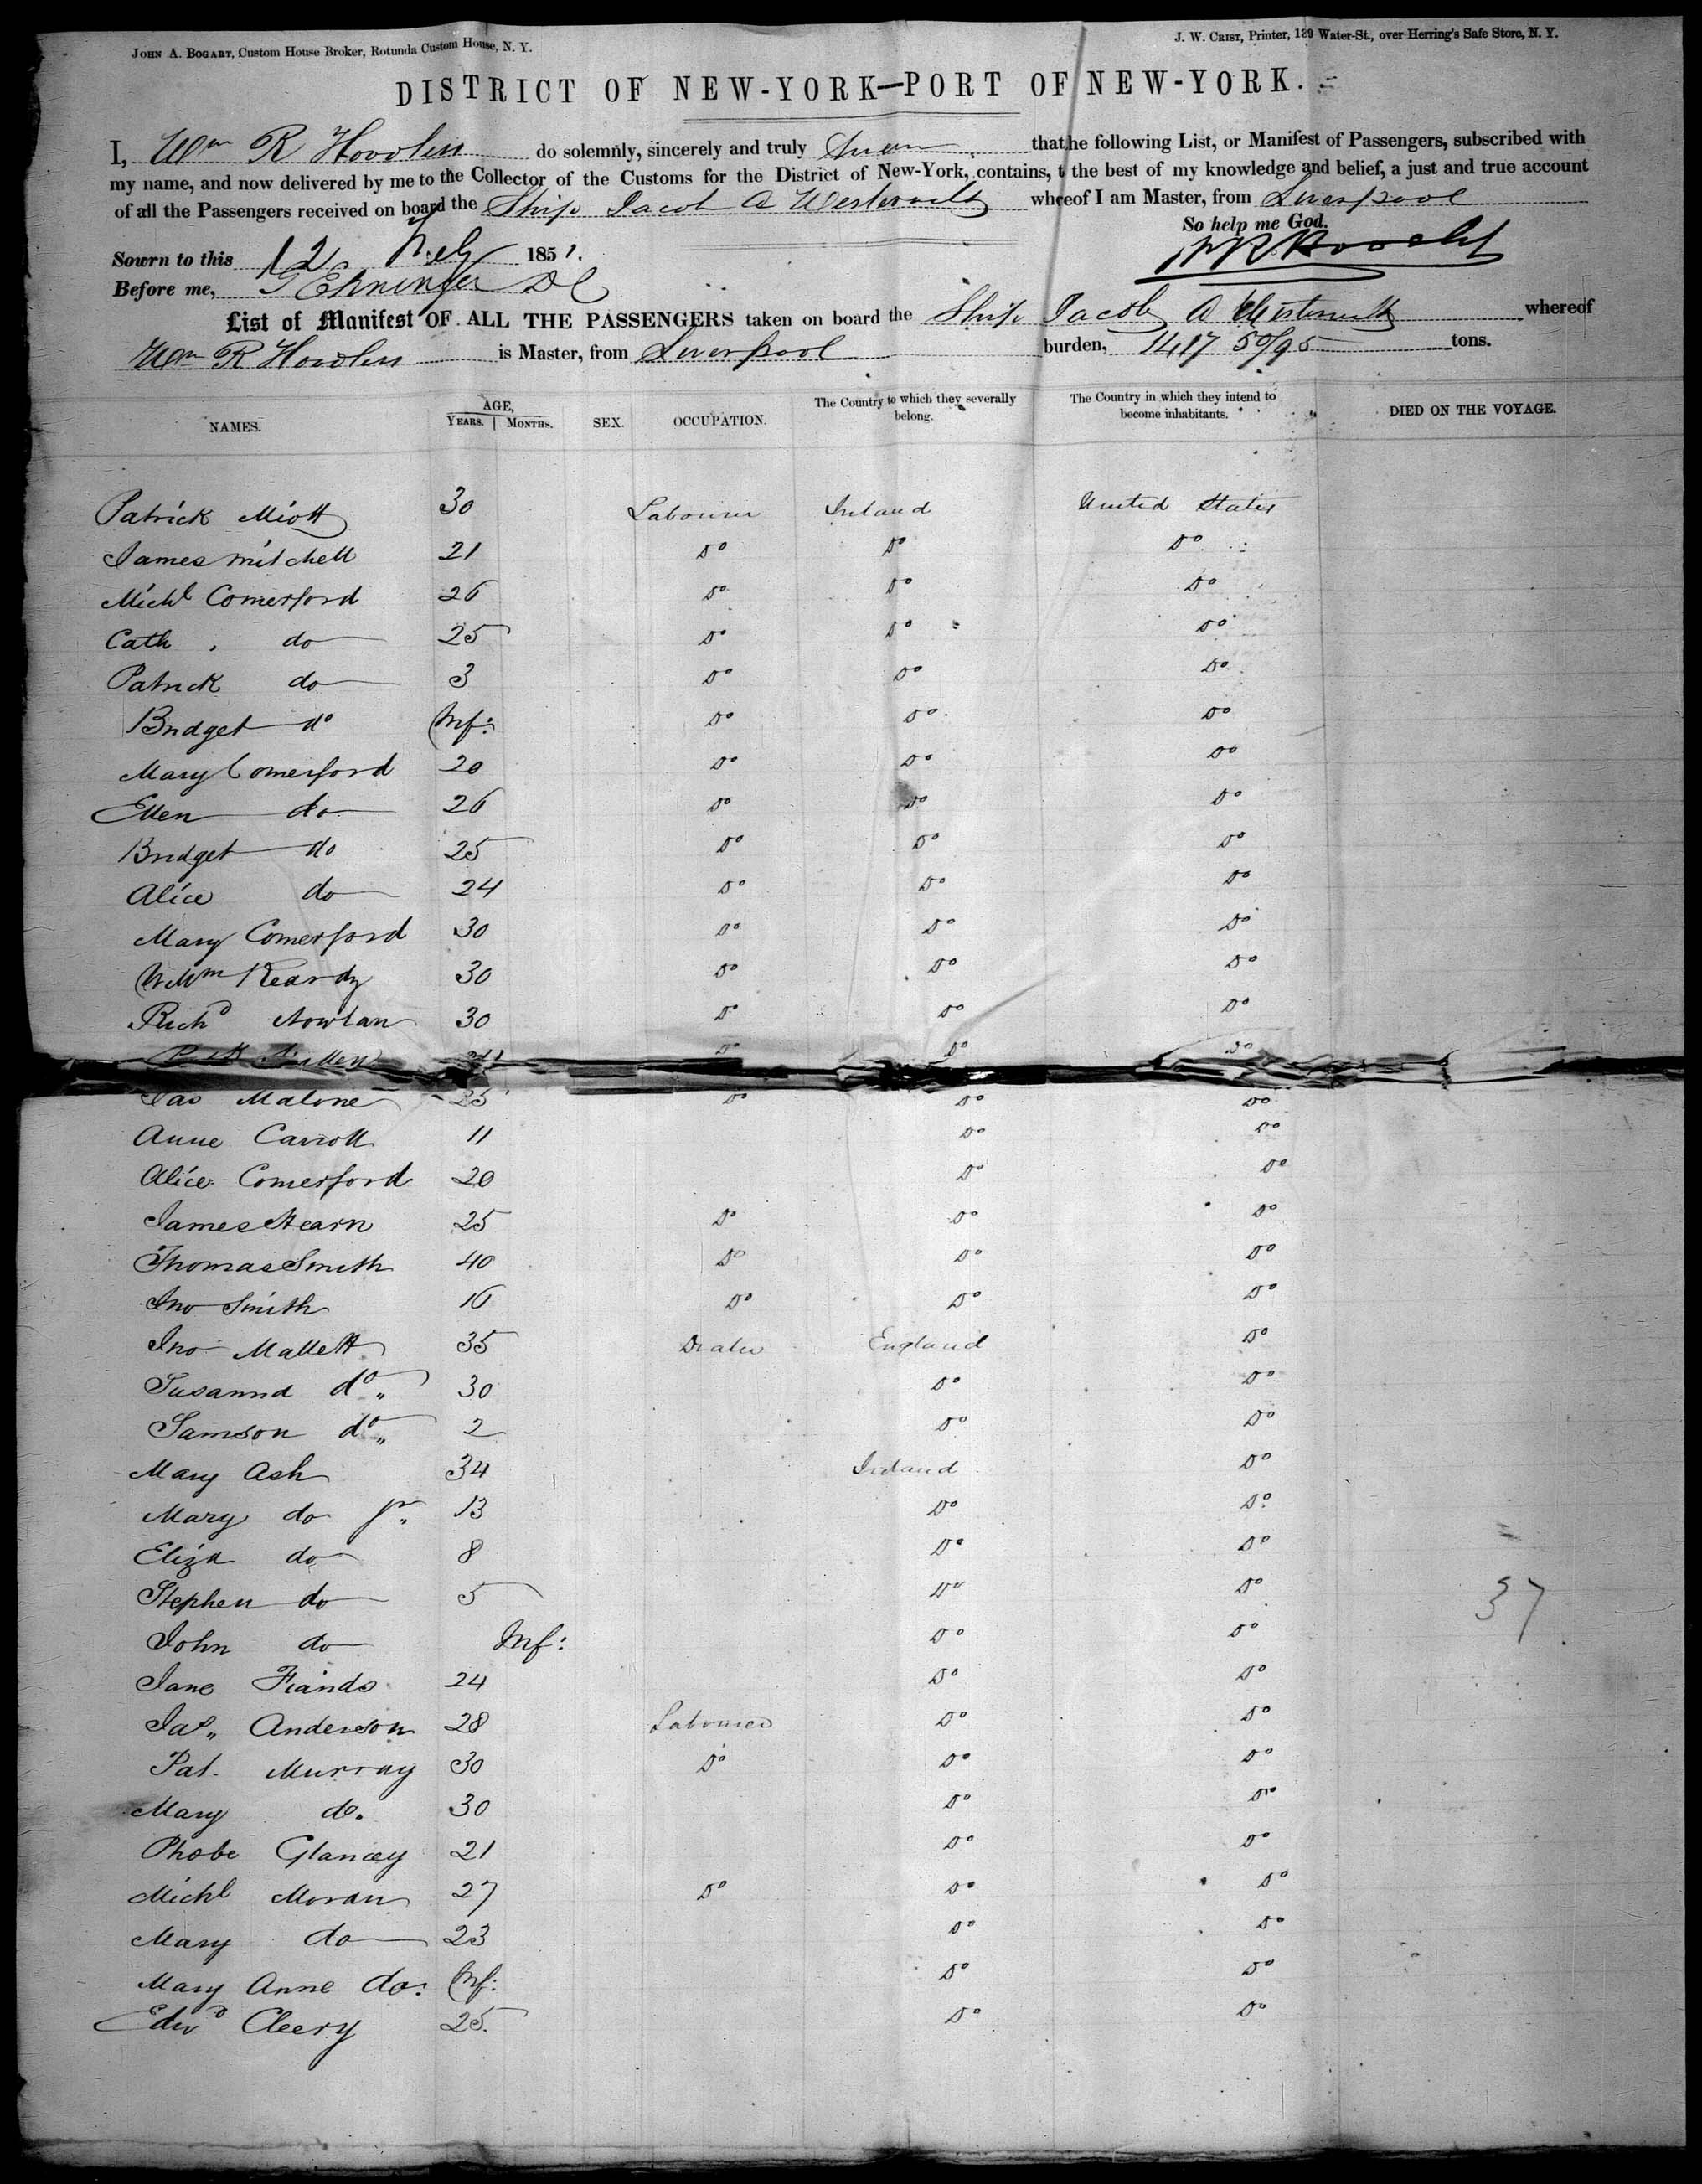 JOHN A. BOGART, Custom House Broker, Rotunda Custom House, N. Y.
J. W. CRIST, Printer, 139 Water-St., over Herring's Safe Store, N. Y.
DISTRICT OF NEW-YORK—PORT OF NEW-YORK.
I, Wm R do solemnly, sincerely and truly Swear that he following List, or Manifest of Passengers, subscribed with
my name, and now delivered by me to the Collector of the Customs for the District of New-York, contains, t the best of my knowledge and belief, a just and true account
of all the Passengers received on board the Ship Jacob A Westervelt whereof I am Master, from Liverpool
So help me God.
Sowrn to this 12 1851.
Before me,
List of Manifest OF ALL THE PASSENGERS taken on board the Ship Jacob A Westervelt whereof
Wm R is Master, from Liverpool burden, 1417 50/95 tons.
NAMES. AGE, YEARS. MONTHS. SEX. OCCUPATION. The Country to which they severally belong. The Country in which they intend to become inhabitants. DIED ON THE VOYAGE.
Patrick Miott 30 Labourer Ireland United States
James Mitchell 21 Do Do Do
Michl Comerford 26 Do Do Do
Cath do 25 Do Do Do
Patrick do 3 Do Do Do
Bridget do Inf: Do Do Do
Mary Comerford 20 Do Do Do
Ellen do 26 Do Do Do
Bridget do 25 Do Do Do
Alice do 24 Do Do Do
Mary Comerford 30 Do Do Do
Willm Reardy 30 Do Do Do
Richd Nowlan 30 Do Do Do
Do Do Do
Jas Malone 25 Do Do Do
Anne Carroll 11 Do Do
Alice Comerford 20 Do Do
James Hearn 25 Do Do Do
Thomas Smith 40 Do Do Do
Jno Smith 16 Do Do Do
Jno Mallett 35 Dealer England Do
Susannd do 30 Do Do
Samson do 2 Do Do
Mary Ash 34 Ireland Do
Mary do Jr. 13 Do Do
Eliza do 8 Do Do
Stephen do 5 Do Do
37
John do Inf: Do Do
Jane Fiands 24 Do Do
Jas Anderson 28 Labourer Do Do
Pat. Murray 30 Do Do Do
Mary do. 30 Do Do
Phobe Glancey 21 Do Do
Michl Moran 27 Do Do Do
Mary do 23 Do Do
Mary Anne do: Inf: Do Do
Edwd Cleery 25. Do Do